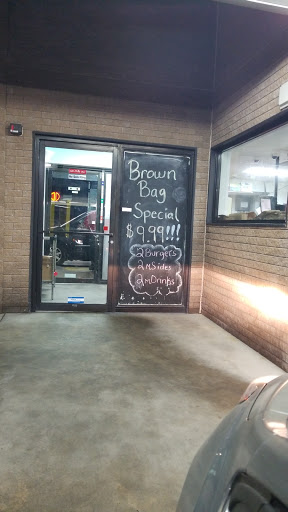 Brown
Bag
Special
$9.99!!!
2 Burgers
2 M Sides
2 M Drinks